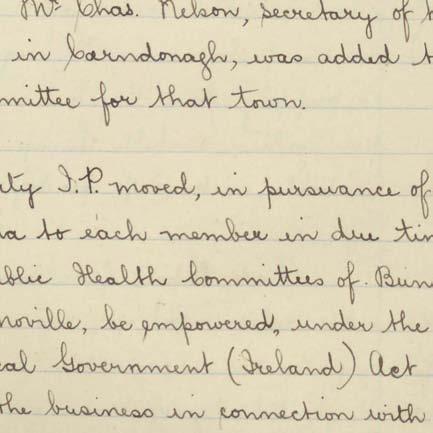 Mr Chas. Nelson, secretary of
in Carndonagh, was added
mittee for that town.
ity J.P. moved, in pursuance of
to each member in due tim
blic Health Committees of Bun
noville, be empowered, under the
cal Government (Ireland) Act
the business in connection with